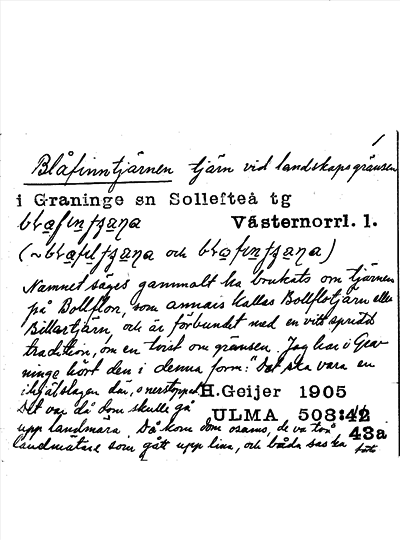 1
Blåfinntjärnen tjärn vid landskapsgränsen
i Graninge sn Sollefteå tg
Västernorrl. l.
och
Namnet säges gammalt ha brukats om tjärnen
på Bollflon, som annars kallas Bollflotjärn eller
Billartjärn, och är förbundet med en vitt spridd
tradition, om en tvist om gränsen. Jag har i Gra-
ninge hört den i denna form: "Det ska vara en
ihjälslagen där, o nerstoppad
H. Geijer 1905
Det var då dom skulle gå
ULMA 508:42
upp landmära. Då kom dom osams, de va två
43a
landmätare som gått upp lina, och båda sas ha